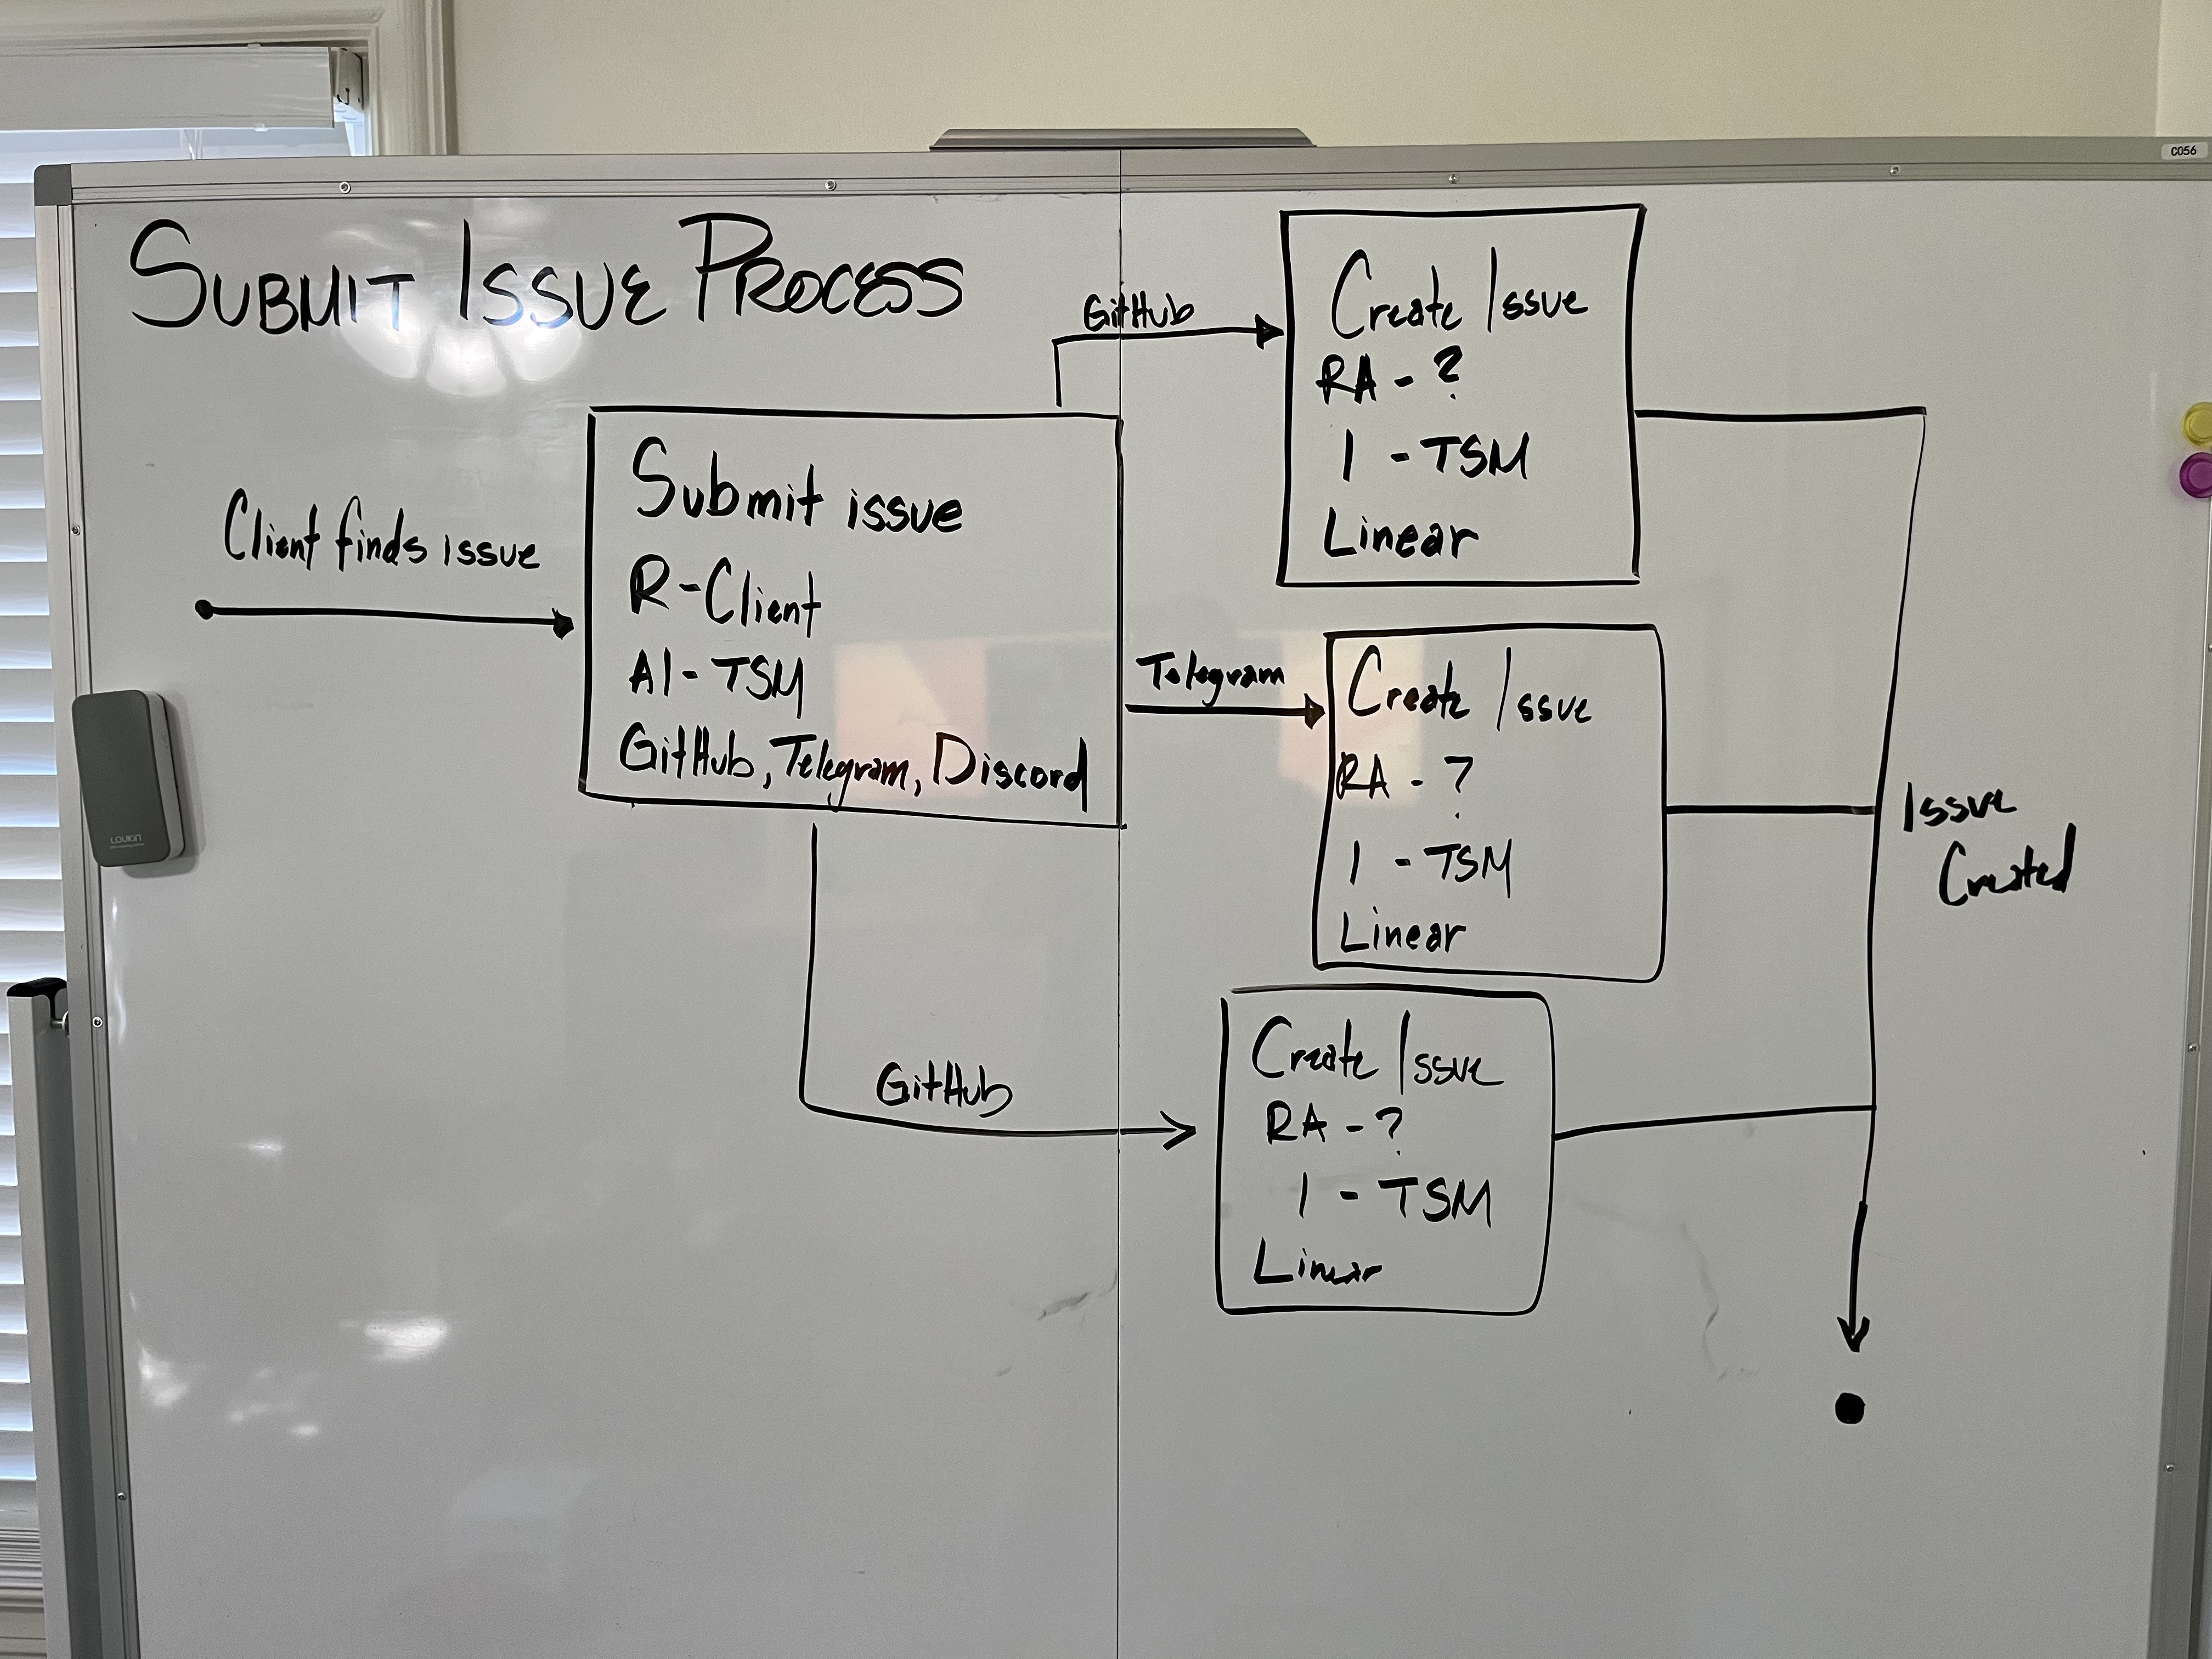 C056
SUBMIT ISSUE PROCESS
Client finds issue
Submit issue
R-Client
AI- TSM
GitHub, Telegram, Discord
GitHub
Create Issue
RA - ?
I - TSM
Linear
Telegram
Create Issue
RA - ?
I - TSM
Linear
GitHub
Create Issue
RA - ?
I - TSM
Linear
Issue
Created